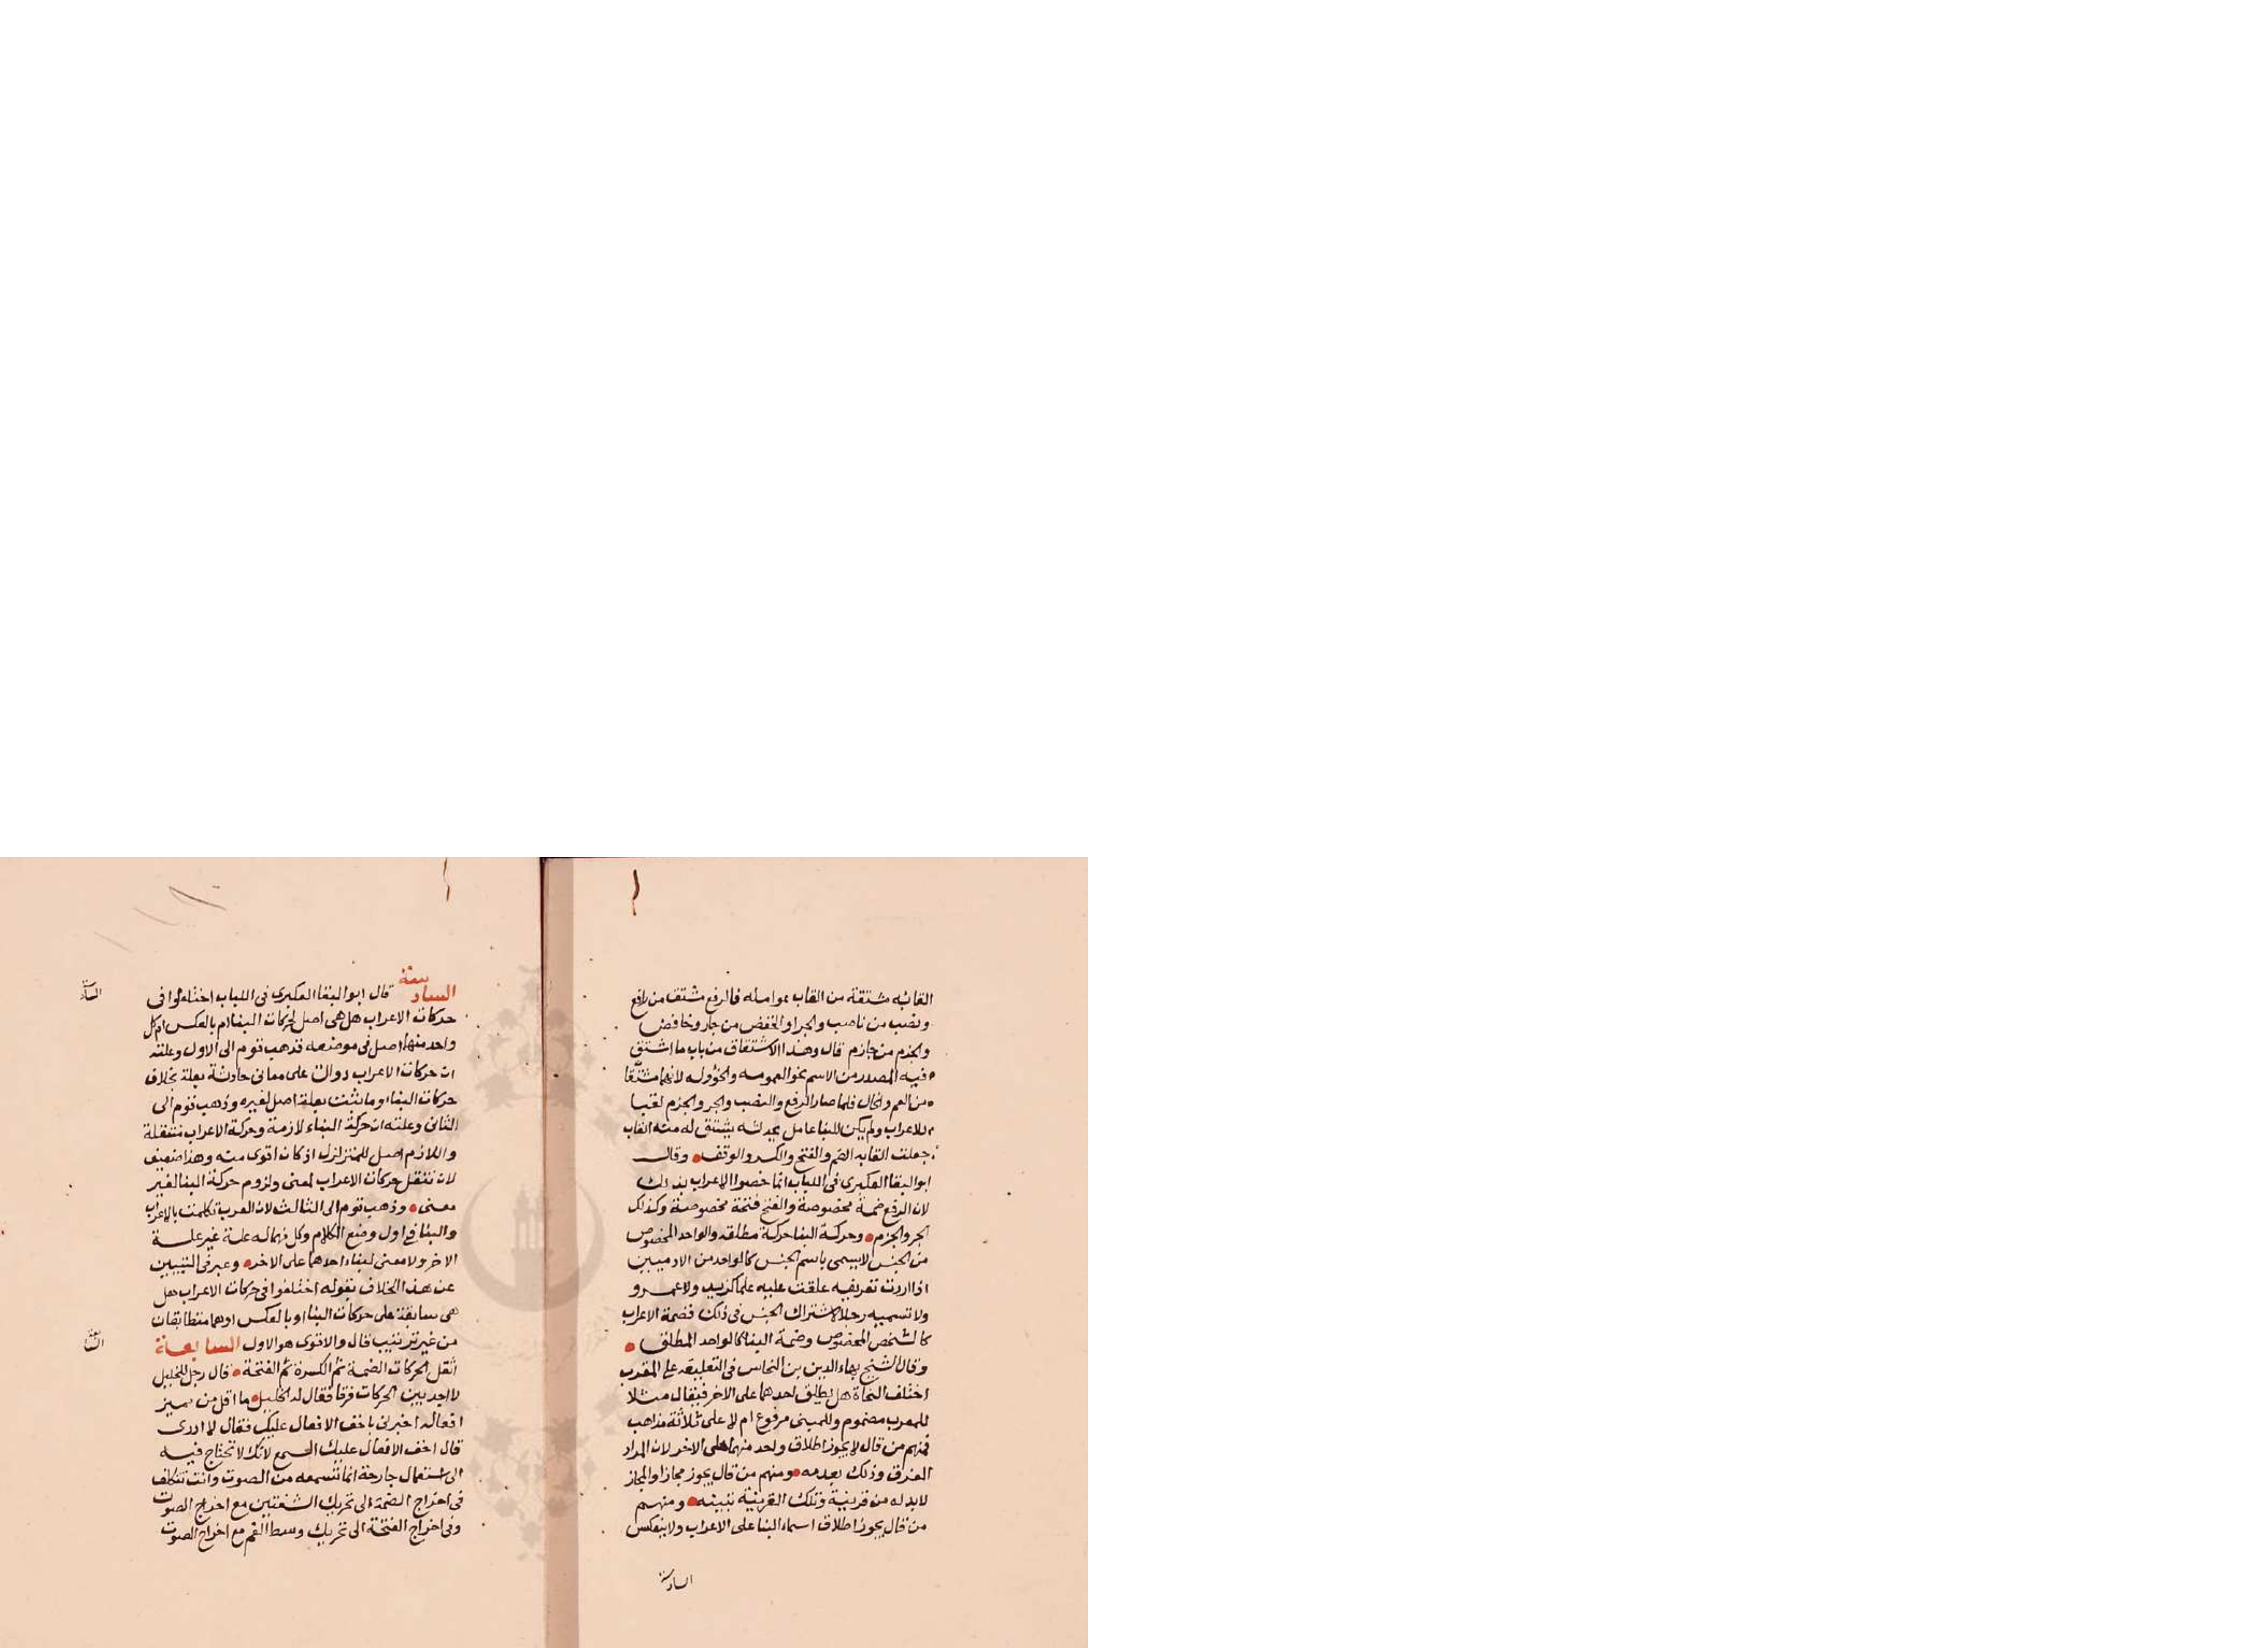 القابه مشتقة من القاب عوامله فالرفع مشتق من رافع
ونصب من ناصب والجر او الخفض من جار وخافض
والجزم من جازم قال وهذا الاشتقاق من باب ما اشتق
فيه المصدر من الاسم نحو العمومه والخؤوله لانهما مشتقا
من العم والخال فلما صار الرفع والنصب والجر والجزم لقبا
للاعراب ولم يكن للبنا عامل يحدثه يشتق له منه القاب
جعلت القابه الضم والفتح والكسر والوقف وقال
ابو البقا العكبري في اللباب انما خصوا الاعراب بذلك
لان الرفع ضمة مخصوصة والفتح فتحة مخصوصة وكذلك
الجر والجزم وحركة البنا حركة مطلقه والواحد المخصوص
من الجنس لا يسمى باسم الجنس كالواحد من الادميين
اذا اردت تعريفه علقت عليه علما كزيد ولا عمرو
ولا تسميه رجلا لاشتراك الجنس في ذلك فضمة الاعراب
كالشخص المخصوص وضمة البنا كالواحد المطلق
وقال الشيخ بهاء الدين بن النحاس في التعليقه على المقرب
اختلف النحاة هل يطلق احدهما على الاخر فيقال مثلا
للمعرب مضموم وللمبني مرفوع ام لا على ثلاثة مذاهب
فمنهم من قال لا يجوز اطلاق واحد منهما على الاخر لان المراد
الفرق وذلك يعدمه ومنهم من قال يجوز مجازا والمجاز
لا بد له من قرينة وتلك القرينة تبينه ومنهم
من قال يجوز اطلاق اسماء البنا على الاعراب ولا ينعكس
السادسة
السادسة قال ابو البقا العكبري في اللباب اختلفوا في
السادسة
حركات الاعراب هل هي اصل لحركات البنا ام بالعكس ام كل
واحد منها اصل في موضعه فذهب قوم الى الاول وعلته
ان حركات الاعراب دوال على معاني حادثة بعلة بخلاف
حركات البناء وما ثبت بعلة اصل لغيره وذهب قوم الى
الثاني وعلته ان حركة البناء لازمة وحركة الاعراب منتقلة
واللازم اصل للمتزلزل اذ كان اقوى منه وهذا ضعيف
لان تنقل حركات الاعراب لمعنى ولزوم حركة البنا لغير
معنى وذهب قوم الى الثالث لان العرب تكلمت بالاعراب
والبنا في اول وضع الكلام وكل منهما له علة غير علة
الاخر ولا معنى لبناء احدهما على الاخر وعبر في التبيين
عن هذا الخلاف بقوله اختلفوا في حركات الاعراب هل
هي سابقة على حركات البنا او بالعكس او هما متطابقان
من غير ترتيب قال والاقوى هو الاول السابعة
السابعة
اثقل الحركات الضمة ثم الكسرة ثم الفتحة قال رجل للخليل
لا اجد بين الحركات فرقا فقال له الخليل ما اقل من يميز
افعاله اخبرني باخف الافعال عليك فقال لا ادري
قال اخف الافعال عليك السمع لانك لا تحتاج فيه
الى استعمال جارحة انما تسمعه من الصوت وانت تتكلف
في اخراج الضمة الى تحريك الشفتين مع اخراج الصوت
وفي اخراج الفتحة الى تحريك وسط الفم مع اخراج الصوت